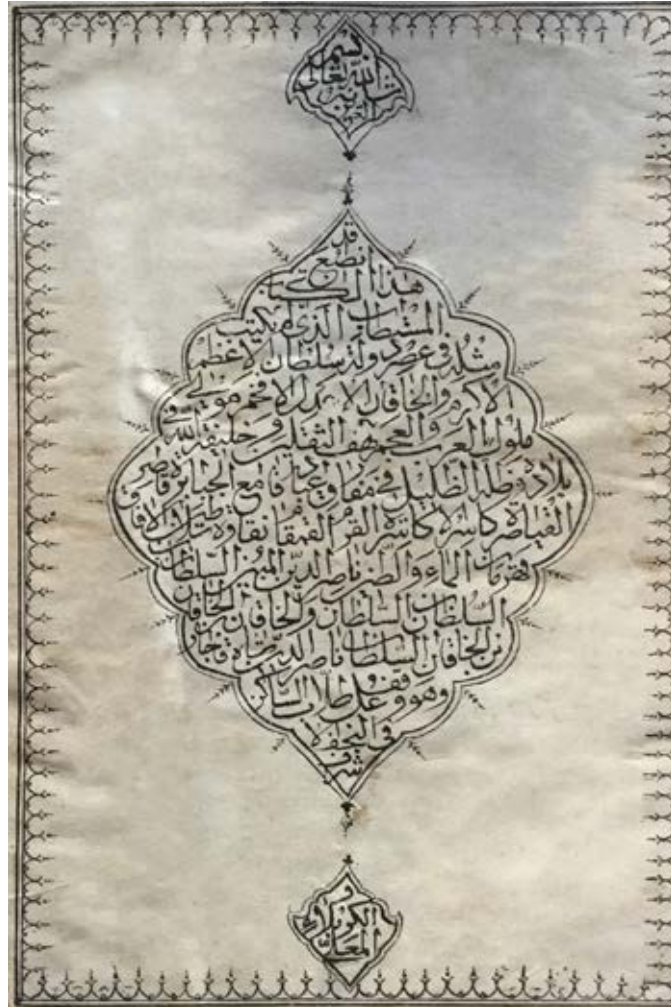 بسم
الله تعالى
قد
انطبع
هذا الكتاب
المستطاب الذي لم يكتب
مثله في عصر دولة سلطان الاعظم
الاكرم والخاقان الافخم مولى
ملوك العرب والعجم كهف الثقلين وخليفة الله في
بلاده وظله الظليل في عباده قامع الجبابرة قاصر
القياصرة كاسر الاكاسرة القرم القمقام نقاوة
قهرمان الماء والطين ناصر الدين المبين السلطان
السلطان السلطان والخاقان بن الخاقان
بن الخاقان السلطان ناصر الدين شاه قاجار
وهو وقف على طلاب الساكن
في النجف الا
شرف
و
الكربلاء
المعلى